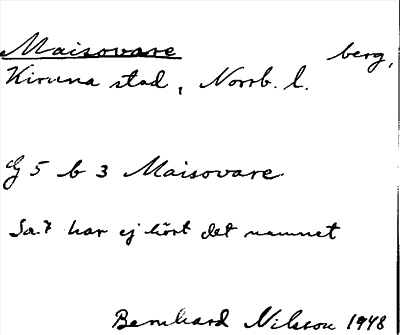 Maisovare berg,
Kiruna stad, Norrb. l.
G 5 b 3 Maisovare
Sa. 7 har ej hört det namnet
Bernhard Nilsson 1948